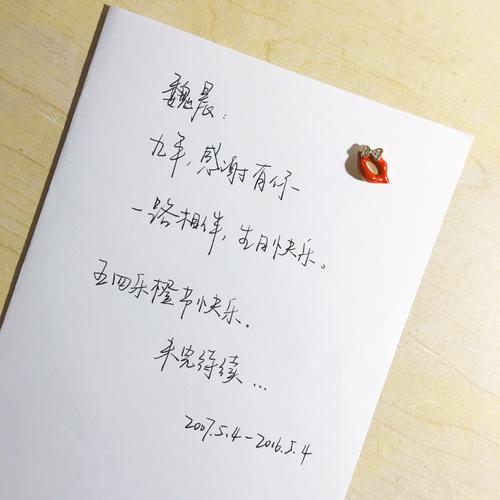 魏晨：
九年，感谢有你
一路相伴，生日快乐。
五四乐橙节快乐。
未完待续...
2007.5.4-2016.5.4